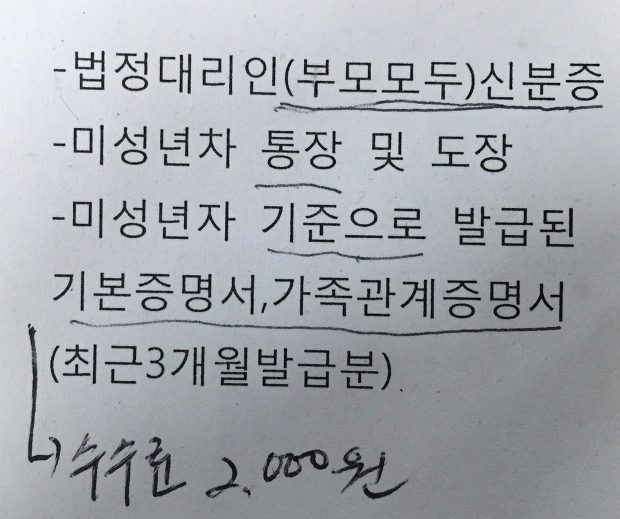 -법정대리인(부모모두)신분증
-미성년차 통장 및 도장
-미성년자 기준으로 발급된
기본증명서,가족관계증명서
(최근3개월발급분)
수수료 2,000원